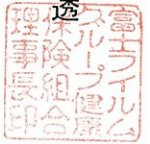 透
富士フイルム
グループ健康
保険組合
理事長印